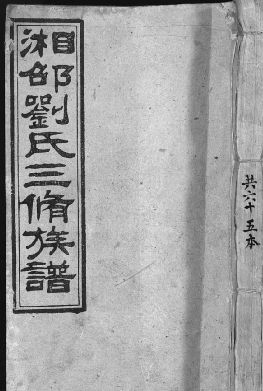 湘邵劉氏三脩族譜
共六十五本